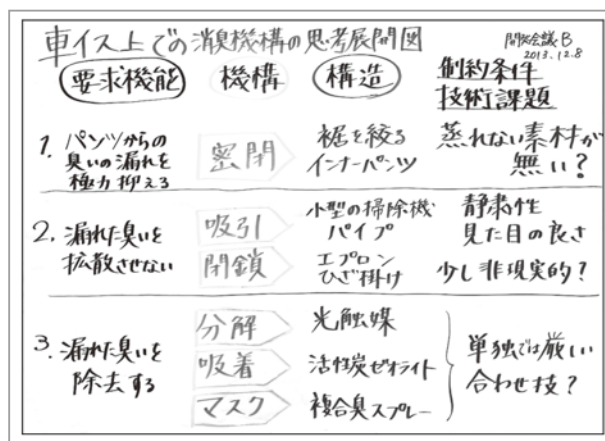 車イス上での消臭機構の思考展開図
開発会議B
2013.12.8
要求機能 機構 構造 制約条件
技術課題
1. パンツからの
臭いの漏れを
極力抑える
密閉
裾を絞る
インナーパンツ
蒸れない素材が
無い?
2. 漏れた臭いを
拡散させない
吸引
小型の掃除機
パイプ
静粛性
見た目の良さ
閉鎖
エプロン
ひざ掛け
少し非現実的?
3. 漏れた臭いを
除去する
分解
光触媒
吸着
活性炭ゼオライト
マスク
複合臭スプレー
単独では厳しい
合わせ技?